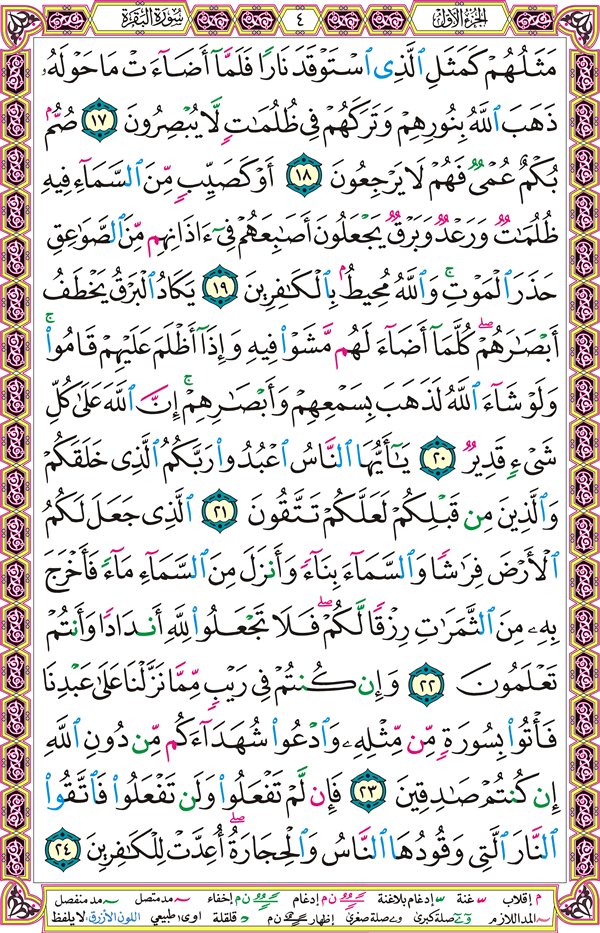 الجزء الأول
٤
سورة البقرة
مَثَلُهُمْ كَمَثَلِ ٱلَّذِى ٱسْتَوْقَدَ نَارًا فَلَمَّآ أَضَآءَتْ مَا حَوْلَهُۥ
ذَهَبَ ٱللَّهُ بِنُورِهِمْ وَتَرَكَهُمْ فِى ظُلُمَٰتٍ لَّا يُبْصِرُونَ ١٧ صُمٌّۢ
بُكْمٌ عُمْىٌ فَهُمْ لَا يَرْجِعُونَ ١٨ أَوْ كَصَيِّبٍ مِّنَ ٱلسَّمَآءِ فِيهِ
ظُلُمَٰتٌ وَرَعْدٌ وَبَرْقٌ يَجْعَلُونَ أَصَٰبِعَهُمْ فِىٓ ءَاذَانِهِم مِّنَ ٱلصَّوَٰعِقِ
حَذَرَ ٱلْمَوْتِ ۚ وَٱللَّهُ مُحِيطٌۢ بِٱلْكَٰفِرِينَ ١٩ يَكَادُ ٱلْبَرْقُ يَخْطَفُ
أَبْصَٰرَهُمْ ۖ كُلَّمَآ أَضَآءَ لَهُم مَّشَوْا۟ فِيهِ وَإِذَآ أَظْلَمَ عَلَيْهِمْ قَامُوا۟ ۚ
وَلَوْ شَآءَ ٱللَّهُ لَذَهَبَ بِسَمْعِهِمْ وَأَبْصَٰرِهِمْ ۚ إِنَّ ٱللَّهَ عَلَىٰ كُلِّ
شَىْءٍ قَدِيرٌ ٢٠ يَٰٓأَيُّهَا ٱلنَّاسُ ٱعْبُدُوا۟ رَبَّكُمُ ٱلَّذِى خَلَقَكُمْ
وَٱلَّذِينَ مِن قَبْلِكُمْ لَعَلَّكُمْ تَتَّقُونَ ٢١ ٱلَّذِى جَعَلَ لَكُمُ
ٱلْأَرْضَ فِرَٰشًا وَٱلسَّمَآءَ بِنَآءً وَأَنزَلَ مِنَ ٱلسَّمَآءِ مَآءً فَأَخْرَجَ
بِهِۦ مِنَ ٱلثَّمَرَٰتِ رِزْقًا لَّكُمْ ۖ فَلَا تَجْعَلُوا۟ لِلَّهِ أَندَادًا وَأَنتُمْ
تَعْلَمُونَ ٢٢ وَإِن كُنتُمْ فِى رَيْبٍ مِّمَّا نَزَّلْنَا عَلَىٰ عَبْدِنَا
فَأْتُوا۟ بِسُورَةٍ مِّن مِّثْلِهِۦ وَٱدْعُوا۟ شُهَدَآءَكُم مِّن دُونِ ٱللَّهِ
إِن كُنتُمْ صَٰدِقِينَ ٢٣ فَإِن لَّمْ تَفْعَلُوا۟ وَلَن تَفْعَلُوا۟ فَٱتَّقُوا۟
ٱلنَّارَ ٱلَّتِى وَقُودُهَا ٱلنَّاسُ وَٱلْحِجَارَةُ ۖ أُعِدَّتْ لِلْكَٰفِرِينَ ٢٤
م إقلاب س غنة س إدغام بلاغنة ن م إدغام ن م إخفاء مد متصل مد منفصل
المد اللازم صلة كبرى صلة صغرى إظهار ن م قلقلة اوى: طبيعي اللون الأزرق: لا يلفظ